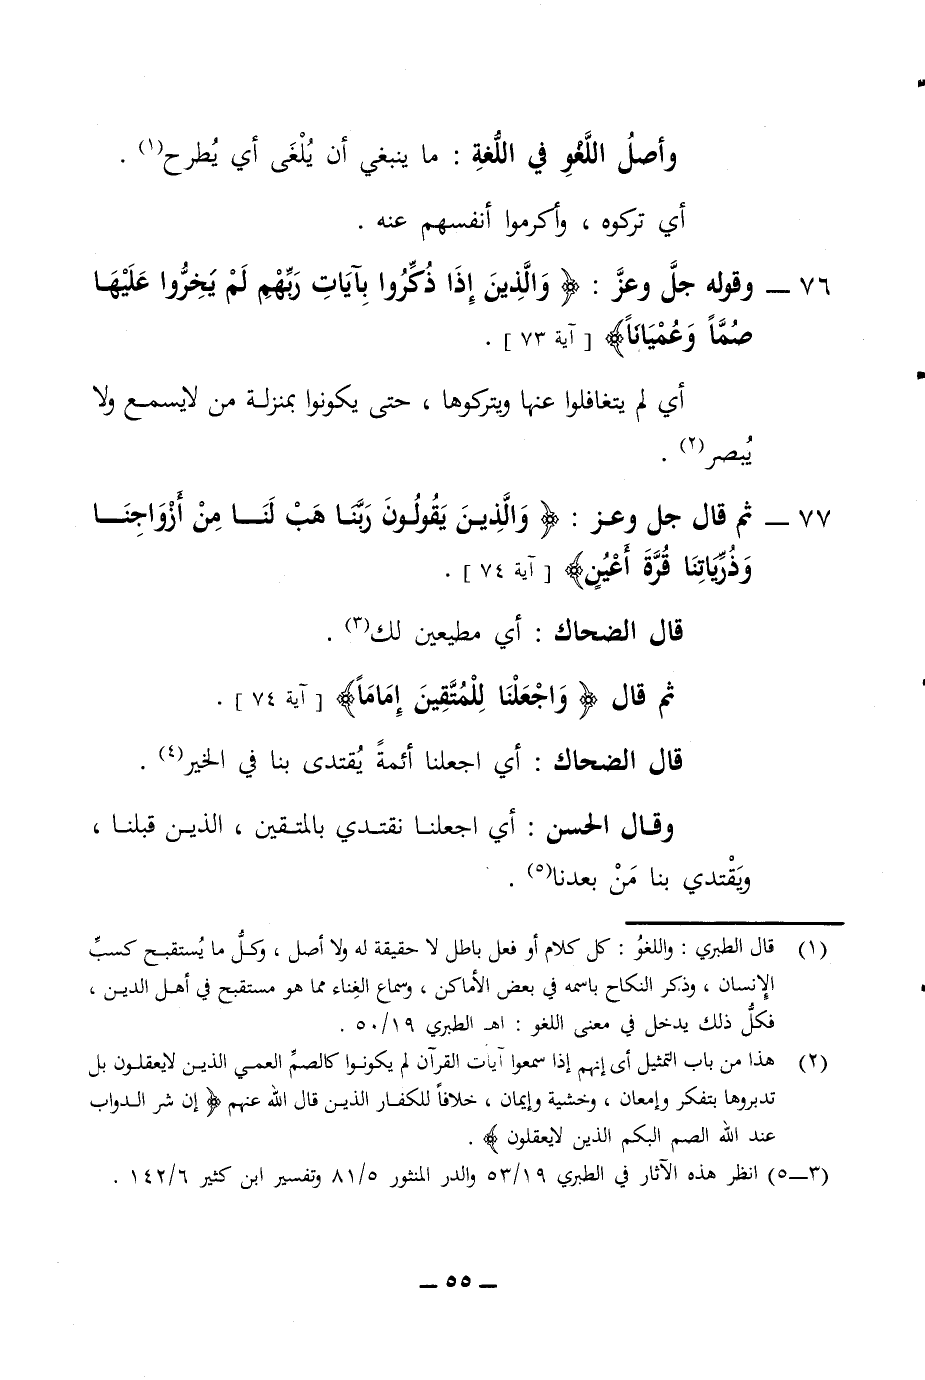 وأصلُ اللَّغْوِ في اللُّغةِ : ما ينبغي أن يُلْغَى أي يُطرح(١) .
أي تركوه ، وأكرموا أنفسهم عنه .
٧٦ ــ وقوله جلَّ وعزَّ : ﴿ وَالَّذِينَ إِذَا ذُكِّرُوا بِآيَاتِ رَبِّهْمِ لَمْ يَخِرُّوا عَلَيْهَا
صُمَّاً وَعُمْيَانَاً﴾ [ آية ٧٣ ] .
أي لم يتغافلوا عنها ويتركوها ، حتى يكونوا بمنزلة من لايسمع ولا
يُبصر(٢) .
٧٧ ــ ثم قال جل وعز : ﴿ وَالَّذِينَ يَقُولُونَ رَبَّنَا هَبْ لَنَا مِنْ أَزْوَاجِنَا
وَذُرِّيَاتِنَا قُرَّةَ أَعْيُنٍ﴾ [ آية ٧٤ ] .
قال الضحاك : أي مطيعين لك(٣) .
ثم قال ﴿ وَاجْعَلْنَا لِلْمُتَّقِينَ إِمَامَاً﴾ [ آية ٧٤ ] .
قال الضحاك : أي اجعلنا أئمةً يُقتدى بنا في الخير(٤) .
وقال الحسن : أي اجعلنا نقتدي بالمتقين ، الذين قبلنا ،
ويَقْتدي بنا مَنْ بعدنا(٥) .
(١) قال الطبري : واللغوُ : كل كلام أو فعل باطل لا حقيقة له ولا أصل ، وكلُّ ما يُستقبح كسبِّ
الإنسان ، وذكر النكاح باسمه في بعض الأماكن ، وسماع الغِناء مما هو مستقبح في أهل الدين ،
فكلُّ ذلك يدخل في معنى اللغو : اهـ الطبري ٥٠/١٩ .
(٢) هذا من باب التمثيل أى إنهم إذا سمعوا آيات القرآن لم يكونوا كالصمِّ العمي الذين لايعقلون بل
تدبروها بتفكر وإمعان ، وخشية وإيمان ، خلافاً للكفار الذين قال الله عنهم ﴿ إن شر الدواب
عند الله الصم البكم الذين لايعقلون ﴾ .
(٣ــ٥) انظر هذه الآثار في الطبري ٥٣/١٩ والدر المنثور ٨١/٥ وتفسير ابن كثير ١٤٢/٦ .
ــ ٥٥ ــ